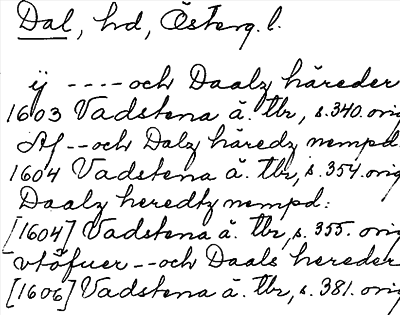 Dal, hd, Österg. l.
ij ---- och Daalz häreder
1603 Vadstena ä. tbr, s. 340. orig
Af -- och Dalz häredz nempd.
1604 Vadstena ä. tbr, s. 354. orig
Daalz heredtz nempd:
[1604] Vadstena ä. tbr, s. 355. orig
vtöfuer -- och Daals hereder
[1606] Vadstena ä. tbr, s. 381. orig